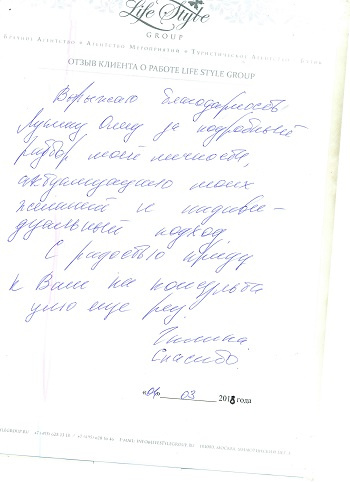 Life Style
GROUP
ОТЗЫВ КЛИЕНТА О РАБОТЕ LIFE STYLE GROUP
Выражаю благодарность
за подробный
разбор моей личности,
актуализацию моих
желаний и индиви-
дуальный подход.
С радостью приду
к Вам на консульта
цию еще раз.
Спасибо.
03 2018 года